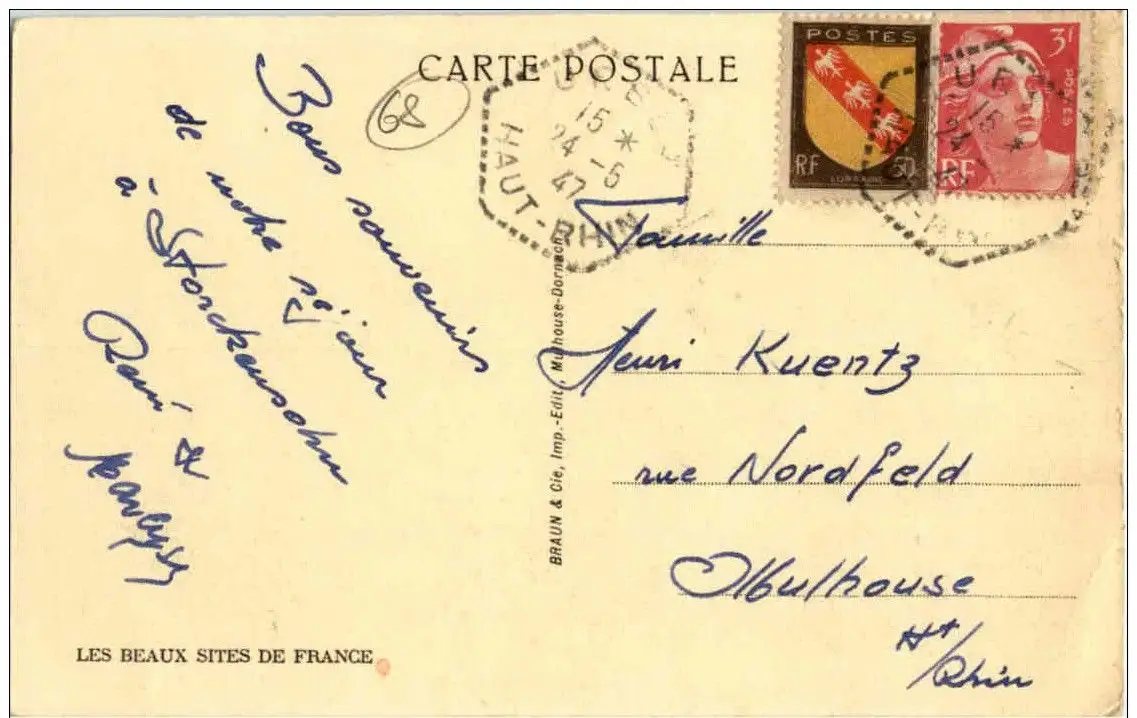 CARTE POSTALE
68
POSTES
RF 50
LORRAINE
3f
POSTES
RF
UR
15 *
24 -6
47
HAUT-RHIN
Bons souvenirs
de notre séjour
à Storckensohn
René et
Famille
Henri Kuentz
rue Nordfeld
Mulhouse
Ht/Rhin
BRAUN & Cie, Imp.-Edit., Mulhouse-Dornach
LES BEAUX SITES DE FRANCE